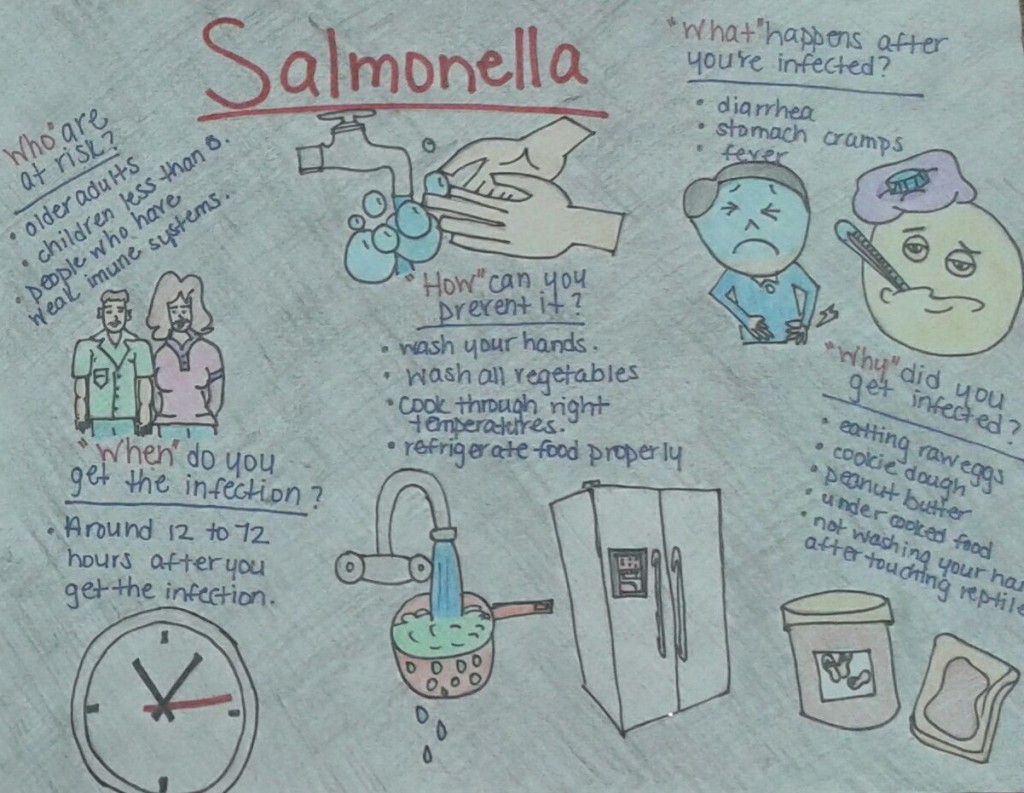 Salmonella
"Who" are
at risk?
• older adults
• children less than 8.
• people who have
weak imune systems.
"When" do you
get the infection?
• Around 12 to 72
hours after you
get the infection.
"How" can you
prevent it?
• wash your hands.
• wash all vegetables
• cook through right
temperatures.
• refrigerate food properly
"What" happens after
you're infected?
• diarrhea
• stomach cramps
• fever
"Why" did you
get infected?
• eatting raw eggs
• cookie dough
• peanut butter
• under cooked food
• not washing your han
after touching reptile